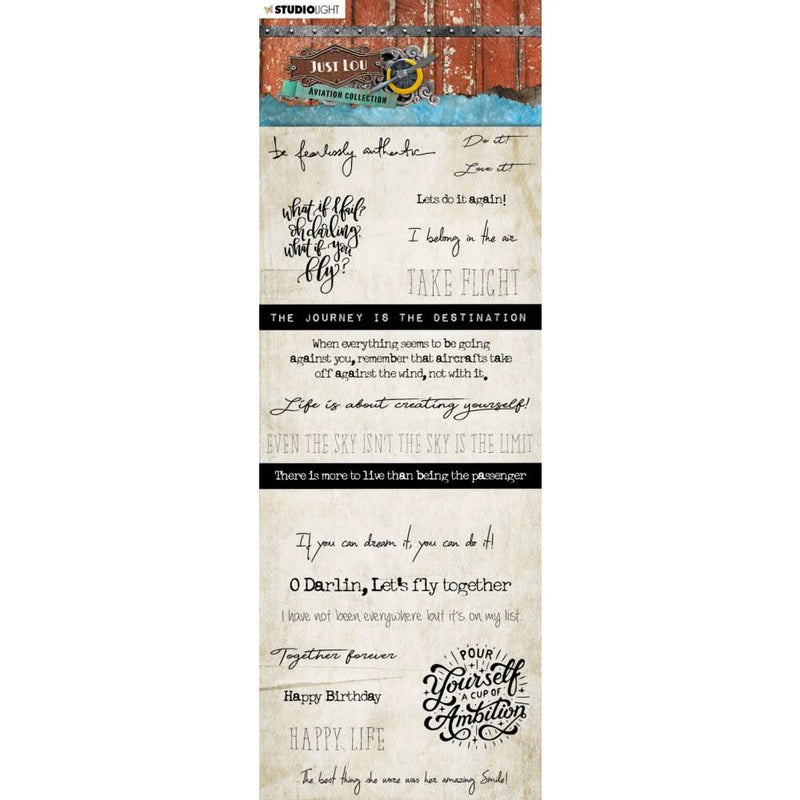 STUDIOLIGHT
JUST LOU
AVIATION COLLECTION
be fearlessly authentic
Do it!
Love it!
what if I fail?
oh darling,
what if you
fly?
Lets do it again!
I belong in the air
TAKE FLIGHT
THE JOURNEY IS THE DESTINATION
When everything seems to be going
against you, remember that aircrafts take
off against the wind, not with it.
Life is about creating yourself!
EVEN THE SKY ISN'T THE SKY IS THE LIMIT
There is more to live than being the passenger
If you can dream it, you can do it!
O Darlin, Let's fly together
I have not been everywhere but it's on my list.
Together forever
Happy Birthday
HAPPY LIFE
POUR
Yourself
A CUP OF
Ambition
The best thing she wore was her amazing Smile!